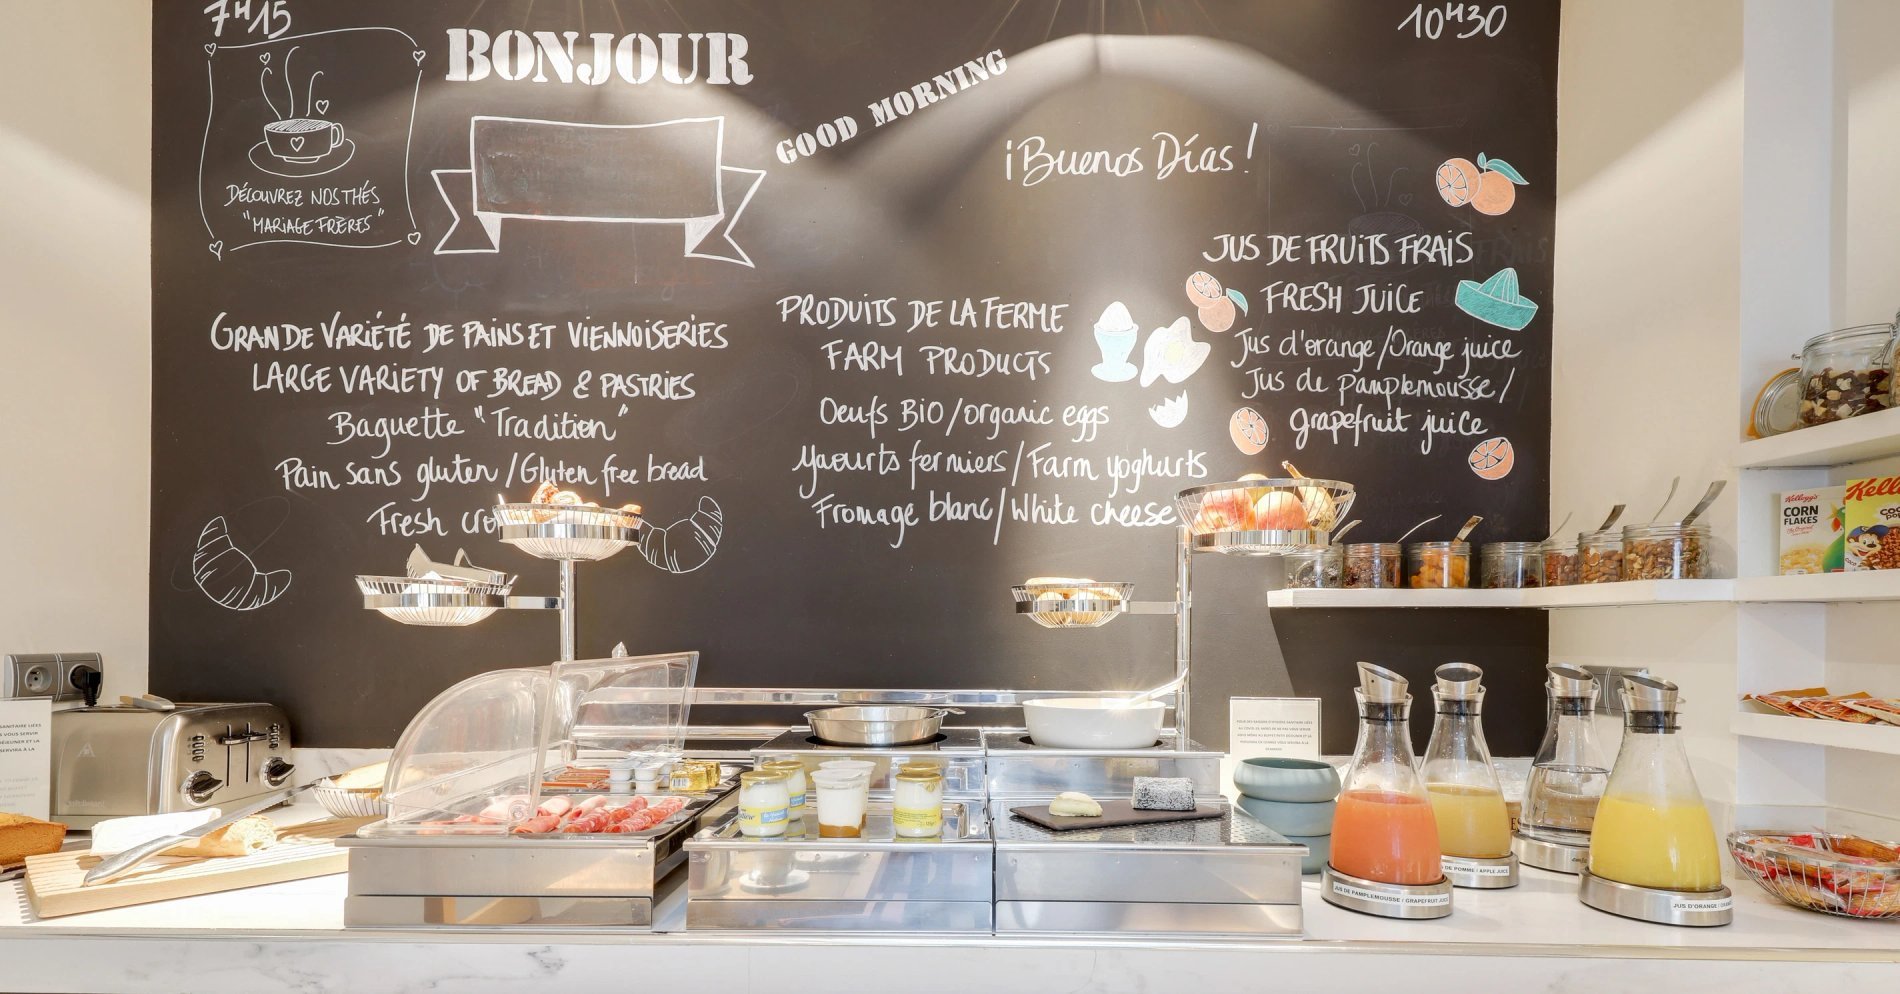 7H15
10H30
BONJOUR
GOOD MORNING
¡Buenos Días!
DÉCOUVREZ NOS THÉS
"MARIAGE FRÈRES"
GRANDE VARIÉTÉ DE PAINS ET VIENNOISERIES
LARGE VARIETY OF BREAD & PASTRIES
Baguette "Tradition"
Pain sans gluten / Gluten free bread
Fresh
PRODUITS DE LA FERME
FARM PRODUCTS
Oeufs BIO / organic eggs
Yaourts fermiers / Farm yoghurts
Fromage blanc / White cheese
JUS DE FRUITS FRAIS
FRESH JUICE
Jus d'orange / Orange juice
Jus de pamplemousse /
grapefruit juice
Kellogg's
CORN
FLAKES
JUS DE PAMPLEMOUSSE / GRAPEFRUIT JUICE
DE POMME / APPLE JUICE
JUS D'ORANGE /